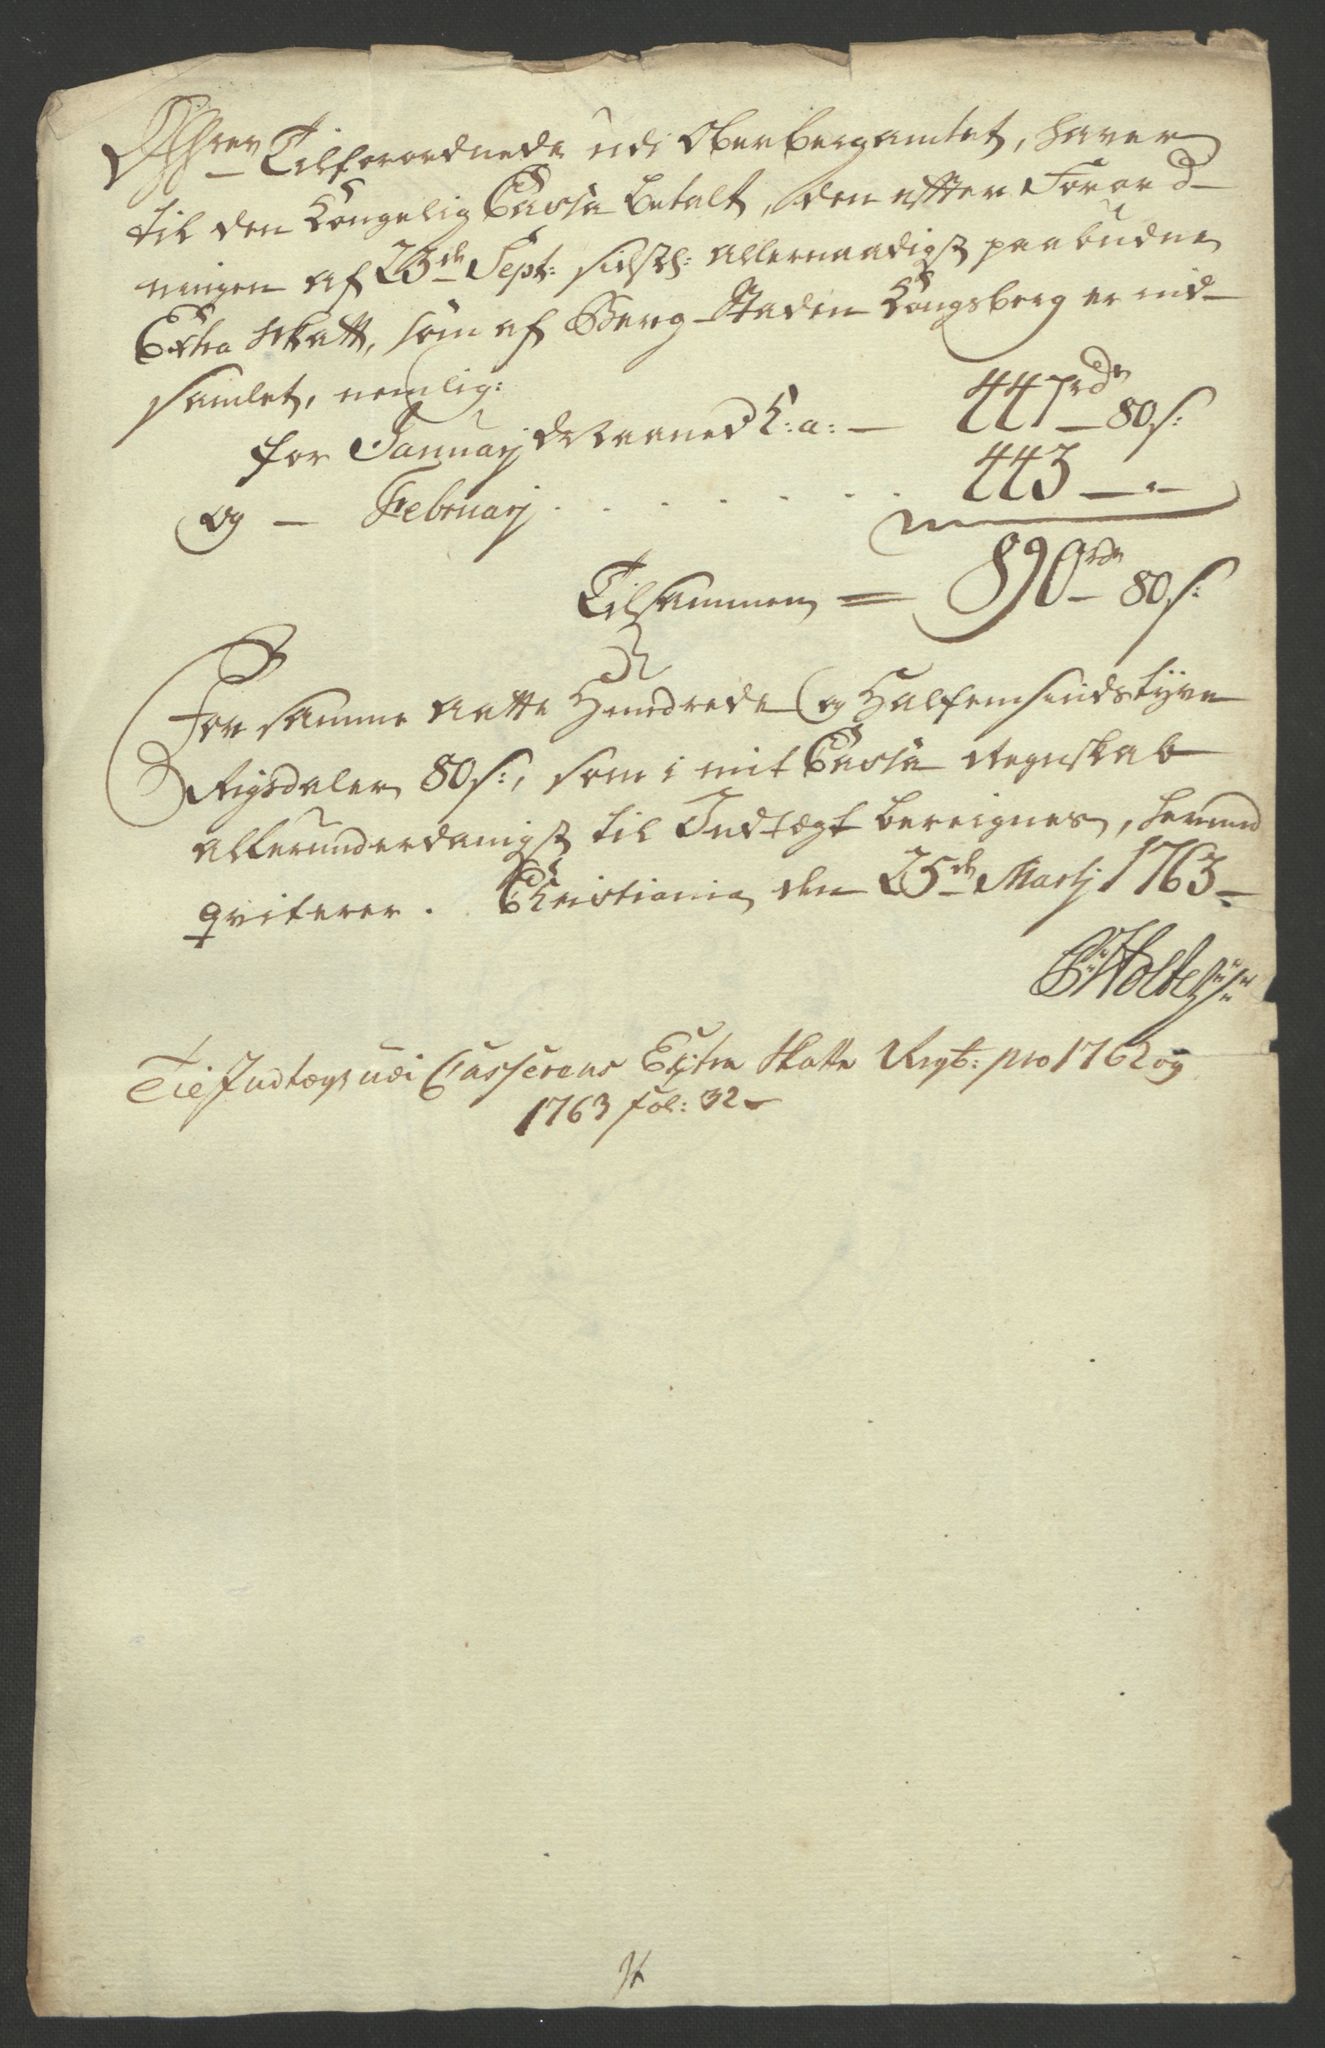 Herrer Tilforordnede udi Oberbergamtet, haver
til den Kongelig Cassa betalt, den efter Forord-
ningen af 23de Sept: sidstl: allernaadigst paabudne
Extra Skatt, som af Berg-Staden Kongsberg er ind-
samlet, nemlig:
for Januarj Maaned h: a: — 447 rdr — 80 s:
og — Februarj . . . . . . 443 — " —
Tilsammen = 890 rdr — 80 s:
For samme aatte Hundrede og Halfemsindstyve
Rigsdaler 80 s:, som i mit Cassa Regnskab
allerunderdanigst til Indtægt bereignes, herved
qviterer. Christiania den 25de Martj 1763 —
Til Indtægt udi Casserens Extra Skatte Regb: pro 1762 og
1763 fol: 32 —